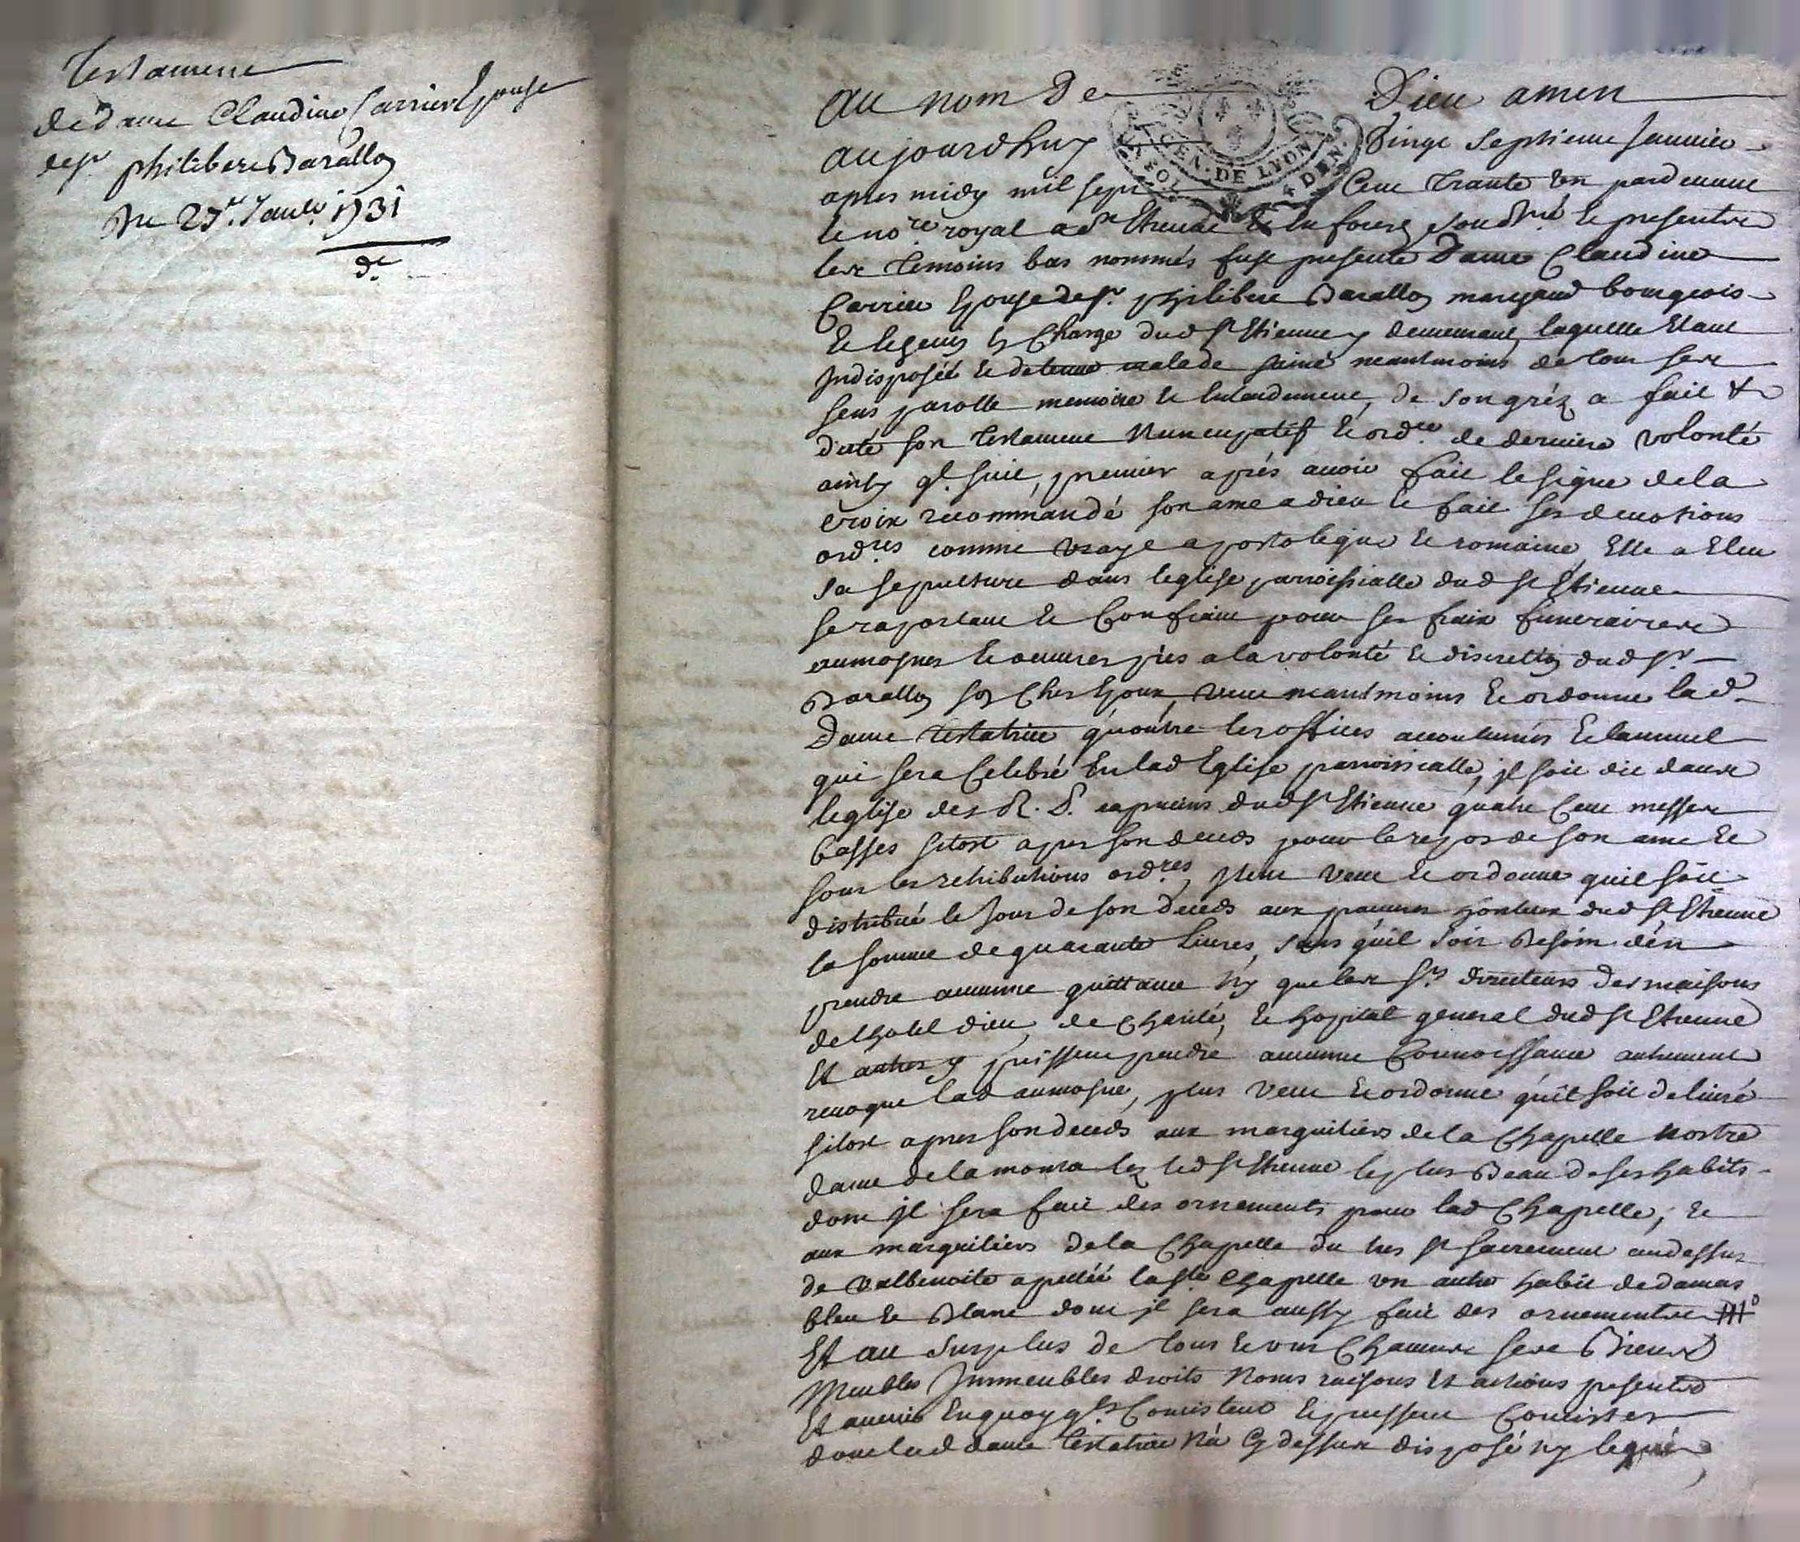 Testament
de dame Claudine Carrier Epouse
de sr. philibert Barallon
Du 27e. Janvr. 1731
de.
au nom de Dieu amen
aujourdhuy Vingt Septieme Janvier
apres midy mil sept Cent trante un pardevant
le nore. royal a st Etienne En forest soubsné. et presents
les temoins bas nommés fust presente Dame Claudine
Carrier Epouse de sr. philibert Barallon marchand bourgeois
dud st Etienne y demeurant, laquelle Etant
Indisposée et detenue malade saine neantmoins de tous ses
sens parolle memoire et Entendement, de son gréz a fait &
dicté son testament Nuncupatif et ordce. de derniere volonté
ainsy q. suit, premier aprés avoir fait le signe de la
croix recommandé son ame a dieu et fait ses devotions
ordres comme vraye apostolique et romaine, Elle a Eleu
sa sepulture dans leglise parroissialle dud st Etienne
se raportant et Confiant pour ses fraix funeraires
aumosnes et oeuvres pies a la volonté et discretion dud sr.
Barallon son Cher Epoux, veut neantmoins et ordonne lad.
Dame testatrice qu'outre les offices accoutumés et lannuel
qui sera Celebré En lad Eglise parroissialle, jl soit dit dans
leglise des R. P. capucins dud st Etienne quatre Cent messes
basses sitost apres son deceds pour le repos de son ame et
sous les retributions ordres, plus veut et ordonne quil soit
distribué le Jour de son deceds aux pauvres honteux dud st Etienne
la somme de quarante Livres, sans qu'il soit Besoin d'en
prendre aucune quittance ny que les srs. directeurs des maisons
de lhotel dieu, de Charité, et hopital general dud st Etienne
Et autres y puissent prendre aucune Connoissance autrement
revoque lad aumosne, plus veut et ordonne qu'il soit delivré
sitost apres son deceds aux marguiliers de la Chapelle Nostre
dame de la monta lez led st Etienne le plus Beau de ses habits
dont jl sera fait des ornements pour lad Chapelle, et
aux marguiliers de la Chapelle du tres st sacrement audessus
de Valbenoite apellée la ste. Chapelle un autre habit de damas
bleu et Blanc dont jl sera aussy fait des ornements
Et au surplus de tous et uns Chacuns ses Biens
Meubles Immeubles droits Noms raisons Et actions presents
Et avenir En quoy qls. Consistent et puissent Consister
dont lad dame testatrice Na Cy dessus disposé ny legué
GEN. DE LYON
4 DEN.